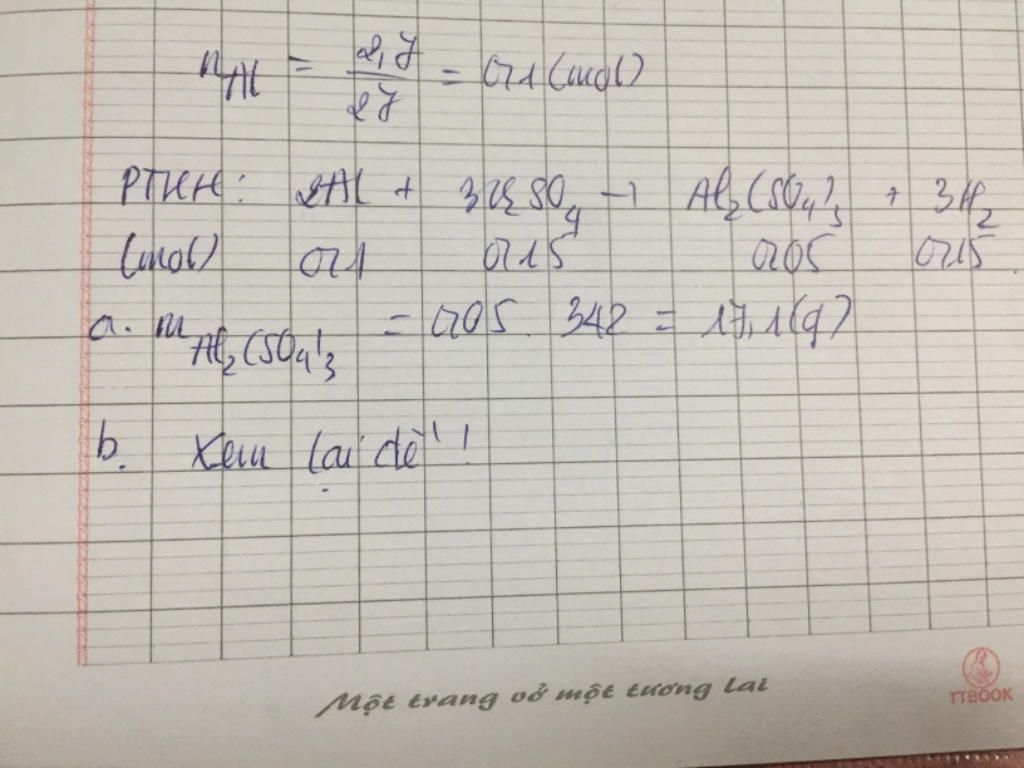 nAl = 2,7/27 = 0,1 (mol)
PTHH: 2Al + 3H2SO4 → Al2(SO4)3 + 3H2
(mol) 0,1 0,15 0,05 0,15
a. mAl2(SO4)3 = 0,05 . 342 = 17,1 (g)
b. Xem lại đề!!
Một trang vở một tương lai
TTBOOK